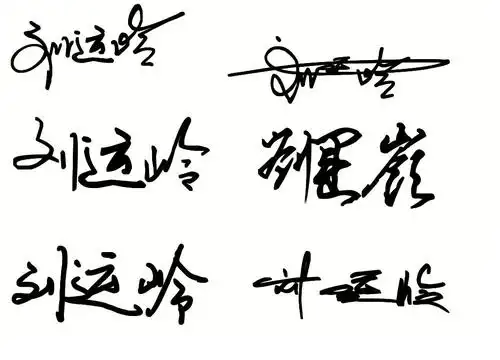 刘运岭 刘运岭
刘运岭 劉運嶺
刘运岭 刘运岭